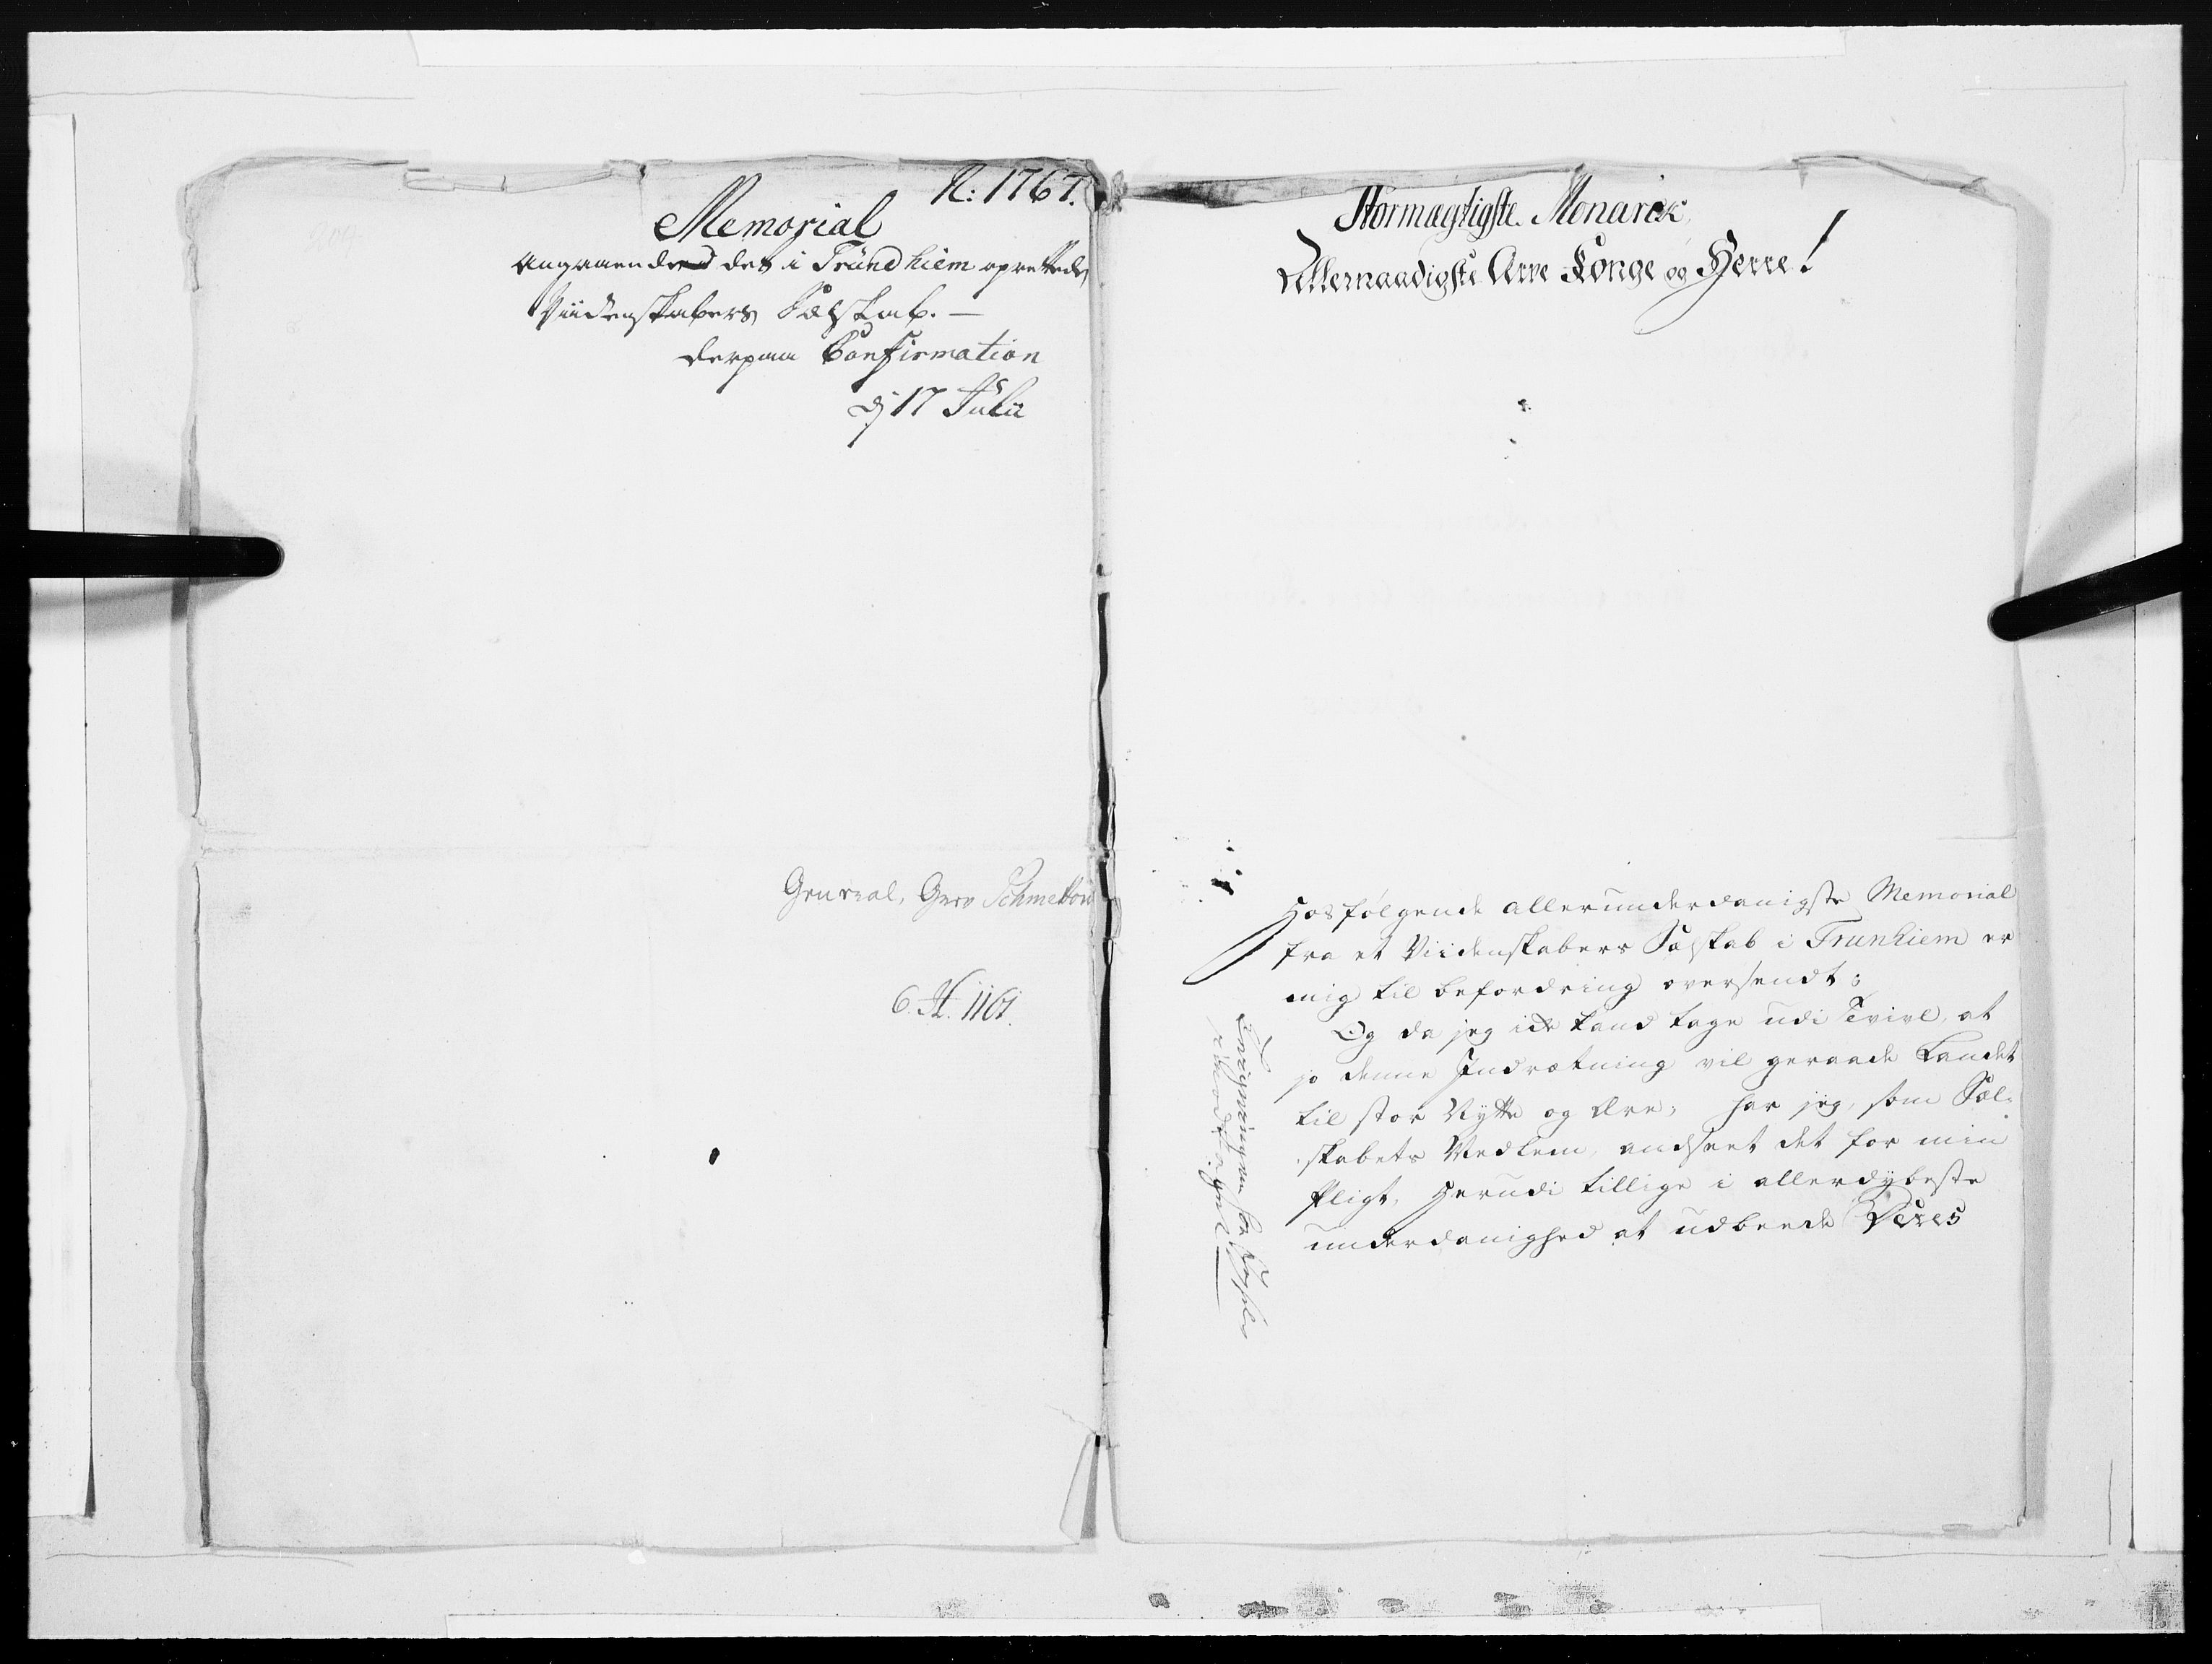 N: 1767.
Memorial
Angaaende det i Trundhiem oprettede
Viidenskabers Sælskab. —
derpaa Confirmation
dj 17 Julii
General, Grev Schmettou
6. H. 1161.
Stormægtigste Monarck,
Allernaadigste Arve Konge og Herre!
Hosfølgende allerunderdanigste Memorial
fra et Viidenskabers Sælskab i Trunhiem er
mig til befordring oversendt;
Og da jeg icke kand tage udi Tvivl, at
jo denne Indrætning vil geraade Landet
til stor Nytte og Ære, har jeg, som Sæl-
skabets Medlem, andseet det for min
Pligt, herudi tillige i allerdybeste
underdanighed at udbeede Deres